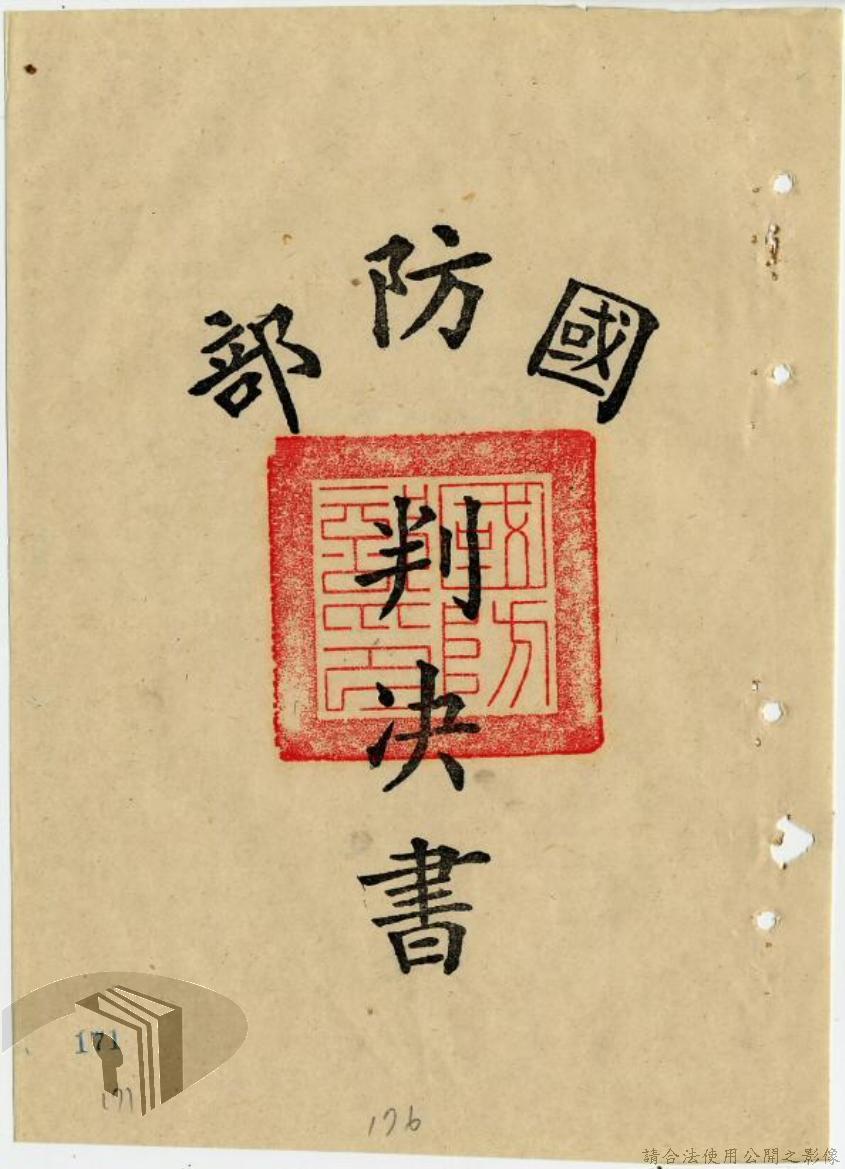 國防部
判決書
國防部印
171
171
176
請合法使用公開之影像